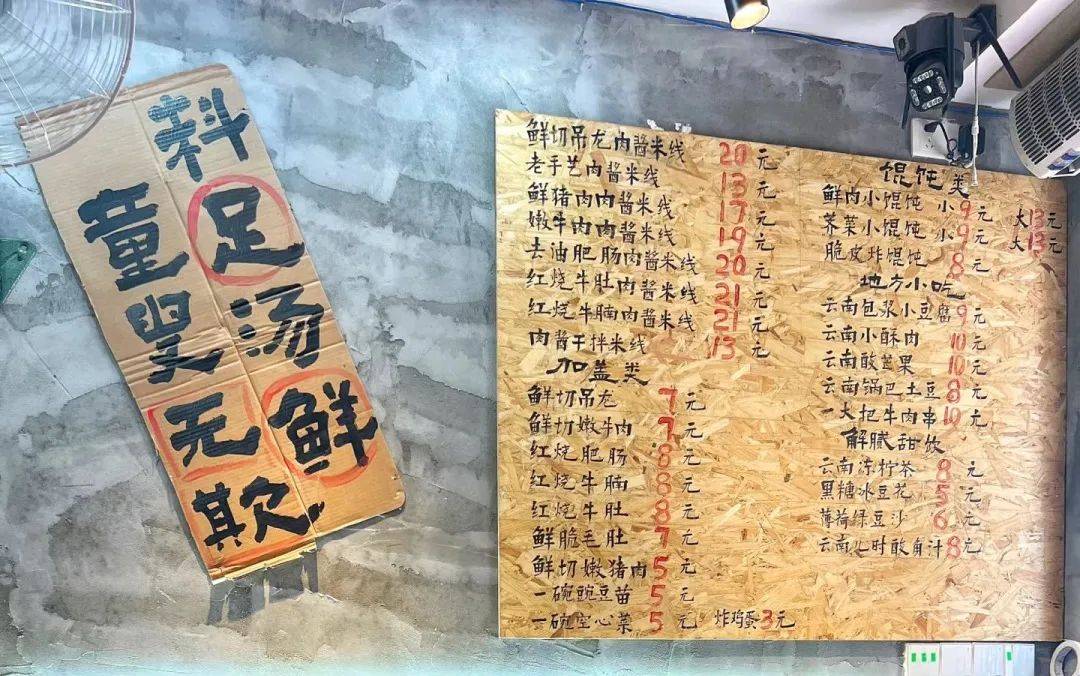 料足汤鲜
童叟无欺
鲜切吊龙肉酱米线 20元
老手艺肉酱米线 13元
鲜猪肉肉酱米线 17元
嫩牛肉肉酱米线 19元
去油肥肠肉酱米线 20元
红烧牛肚肉酱米线 21元
红烧牛腩肉酱米线 21元
肉酱干拌米线 13元
加盖类
鲜切吊龙 7元
鲜切嫩牛肉 7元
红烧肥肠 8元
红烧牛腩 8元
红烧牛肚 8元
鲜脆毛肚 7元
鲜切嫩猪肉 5元
一碗豌豆苗 5元
一碗空心菜 5元 炸鸡蛋3元
馄饨类
鲜肉小馄饨 小9元 大13元
荠菜小馄饨 小9元 大13元
脆皮炸馄饨 8元
地方小吃
云南包浆小豆腐 9元
云南小酥肉 10元
云南酸芒果 10元
云南锅巴土豆 8元
一大把牛肉串 10元
解腻甜饮
云南冻柠茶 8元
黑糖冰豆花 5元
薄荷绿豆沙 6元
云南儿时酸角汁 8元